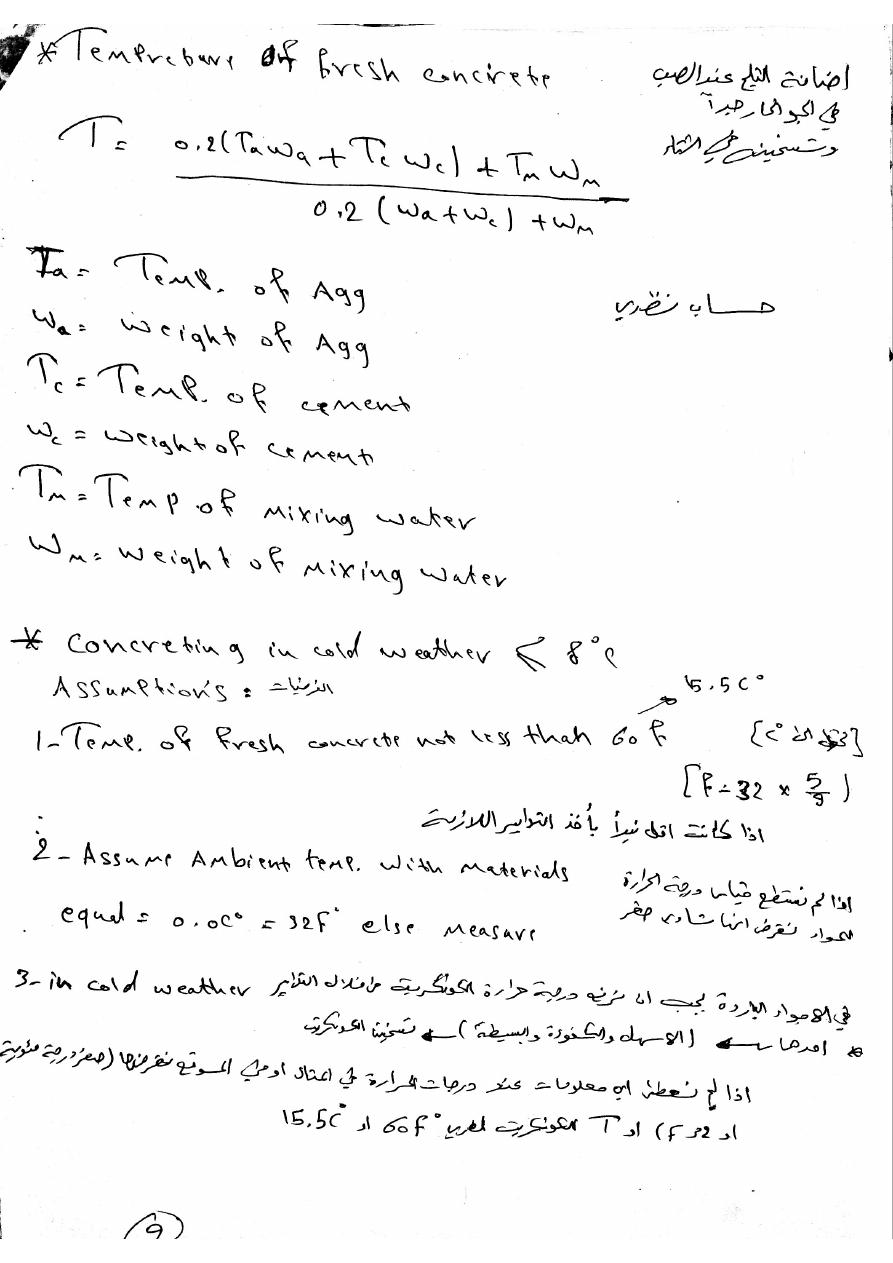 * Temprebure of fresh concrete
اضافة الثلج عند الصب
في الجو الحار جداً
وتسخينه في الشتاء
T = 0.2(TaWa + Tc Wc) + TM WM
0.2 (Wa + Wc) + WM
Ta = Temp. of Agg
حساب نظري
Wa = weight of Agg
Tc = Temp. of cement
Wc = weight of cement
TM = Temp of Mixing water
WM = weight of Mixing water
* Concreting in cold weather < 8°C
Assumption's : الفرضيات
15.5 C°
1- Temp. of fresh concrete not less than 60 f
[F - 32 × 5/9)
اذا كانت اقل نبدأ بأخذ التدابير اللازمة
2 - Assume Ambient temp. with Materials
equal = 0.0C° = 32F° else Measure
اذا لم نستطع قياس درجة الحرارة
للمواد نفرض انها تساوي صفر
3- in cold weather في الاجواء الباردة يجب ان نرفع درجة حرارة الكونكريت من خلال التدابير
* احدها ← (الاسهل والكفوءة والبسيطة) ← تسخين الكونكريت
اذا لم نعطى اي معلومات عند درجات الحرارة في او في الموقع نفرضها (صفر درجة مئوية
او 32 F) او T الكونكريت 60 f° او 15.5C°
9